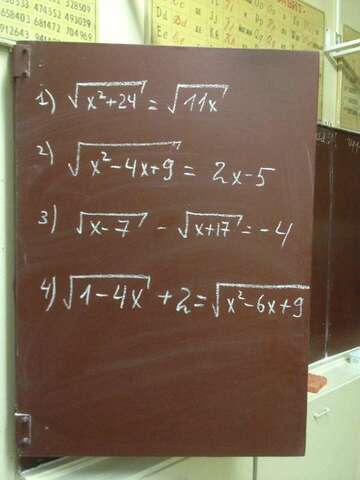 1) √(x²+24) = √(11x)
2) √(x²-4x+9) = 2x-5
3) √(x-7) - √(x+17) = -4
4) √(1-4x) + 2 = √(x²-6x+9)